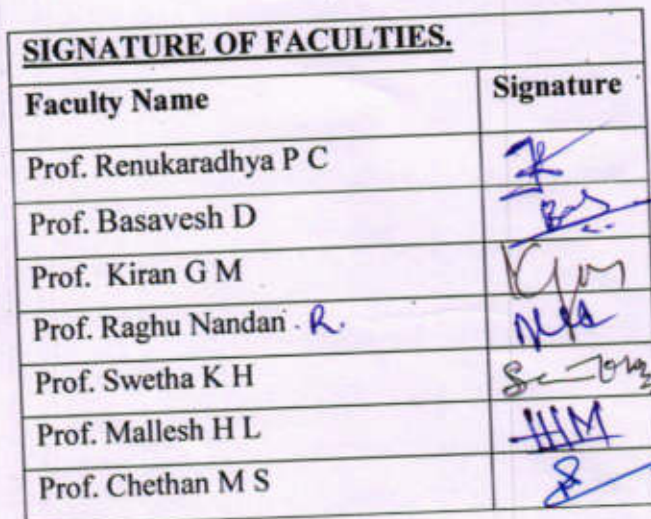 SIGNATURE OF FACULTIES.
Faculty Name Signature
Prof. Renukaradhya P C
Prof. Basavesh D
Prof. Kiran G M
Prof. Raghu Nandan R.
Prof. Swetha K H
Prof. Mallesh H L
Prof. Chethan M S